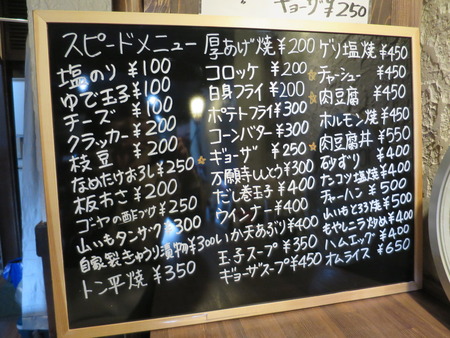 ギョーザ ¥250
スピードメニュー
塩のり ¥100
ゆで玉子 ¥100
チーズ ¥100
クラッカー ¥200
枝豆 ¥200
なめたけおろし ¥250
板わさ ¥200
ゴーヤの酢づけ ¥250
山いもタンサク ¥300
自家製きゅうり漬物 ¥300
トン平焼 ¥350
厚あげ焼 ¥200
コロッケ ¥200
白身フライ ¥200
ポテトフライ ¥300
コーンバター ¥300
☆ギョーザ ¥250
万願寺しとう ¥300
だし巻玉子 ¥400
ウインナー ¥400
いか天あぶり ¥400
玉子スープ ¥350
ギョーザスープ ¥450
ゲソ塩焼 ¥450
☆チャーシュー ¥450
☆肉豆腐 ¥450
ホルモン焼 ¥450
☆肉豆腐丼 ¥550
砂ずり ¥400
タンコツ塩焼 ¥400
チャーハン ¥500
山いもとろろ焼 ¥500
もやしニラ炒め ¥400
ハムエッグ ¥400
オムライス ¥650